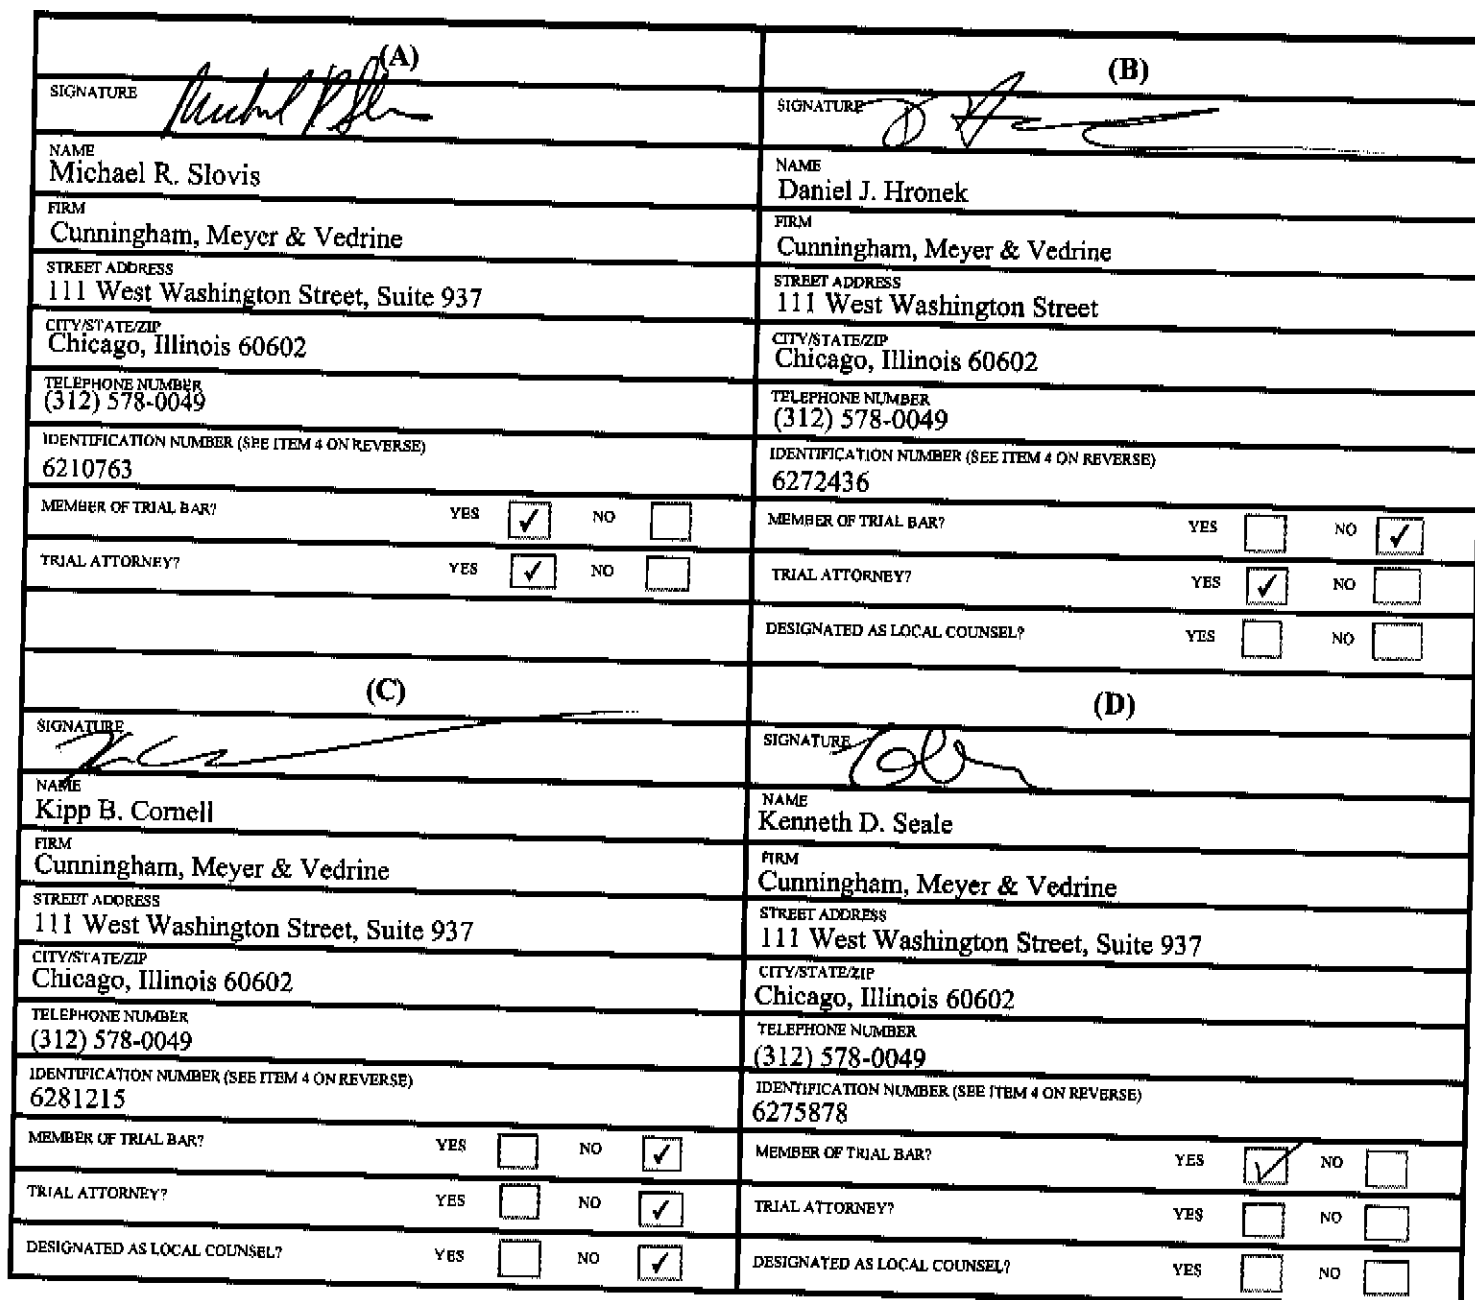 (A)
SIGNATURE
NAME
Michael R. Slovis
FIRM
Cunningham, Meyer & Vedrine
STREET ADDRESS
111 West Washington Street, Suite 937
CITY/STATE/ZIP
Chicago, Illinois 60602
TELEPHONE NUMBER
(312) 578-0049
IDENTIFICATION NUMBER (SEE ITEM 4 ON REVERSE)
6210763
MEMBER OF TRIAL BAR? YES ✓ NO
TRIAL ATTORNEY? YES ✓ NO
(B)
SIGNATURE
NAME
Daniel J. Hronek
FIRM
Cunningham, Meyer & Vedrine
STREET ADDRESS
111 West Washington Street
CITY/STATE/ZIP
Chicago, Illinois 60602
TELEPHONE NUMBER
(312) 578-0049
IDENTIFICATION NUMBER (SEE ITEM 4 ON REVERSE)
6272436
MEMBER OF TRIAL BAR? YES NO ✓
TRIAL ATTORNEY? YES ✓ NO
DESIGNATED AS LOCAL COUNSEL? YES NO
(C)
SIGNATURE
NAME
Kipp B. Cornell
FIRM
Cunningham, Meyer & Vedrine
STREET ADDRESS
111 West Washington Street, Suite 937
CITY/STATE/ZIP
Chicago, Illinois 60602
TELEPHONE NUMBER
(312) 578-0049
IDENTIFICATION NUMBER (SEE ITEM 4 ON REVERSE)
6281215
MEMBER OF TRIAL BAR? YES NO ✓
TRIAL ATTORNEY? YES NO ✓
DESIGNATED AS LOCAL COUNSEL? YES NO ✓
(D)
SIGNATURE
NAME
Kenneth D. Seale
FIRM
Cunningham, Meyer & Vedrine
STREET ADDRESS
111 West Washington Street, Suite 937
CITY/STATE/ZIP
Chicago, Illinois 60602
TELEPHONE NUMBER
(312) 578-0049
IDENTIFICATION NUMBER (SEE ITEM 4 ON REVERSE)
6275878
MEMBER OF TRIAL BAR? YES ✓ NO
TRIAL ATTORNEY? YES NO
DESIGNATED AS LOCAL COUNSEL? YES NO